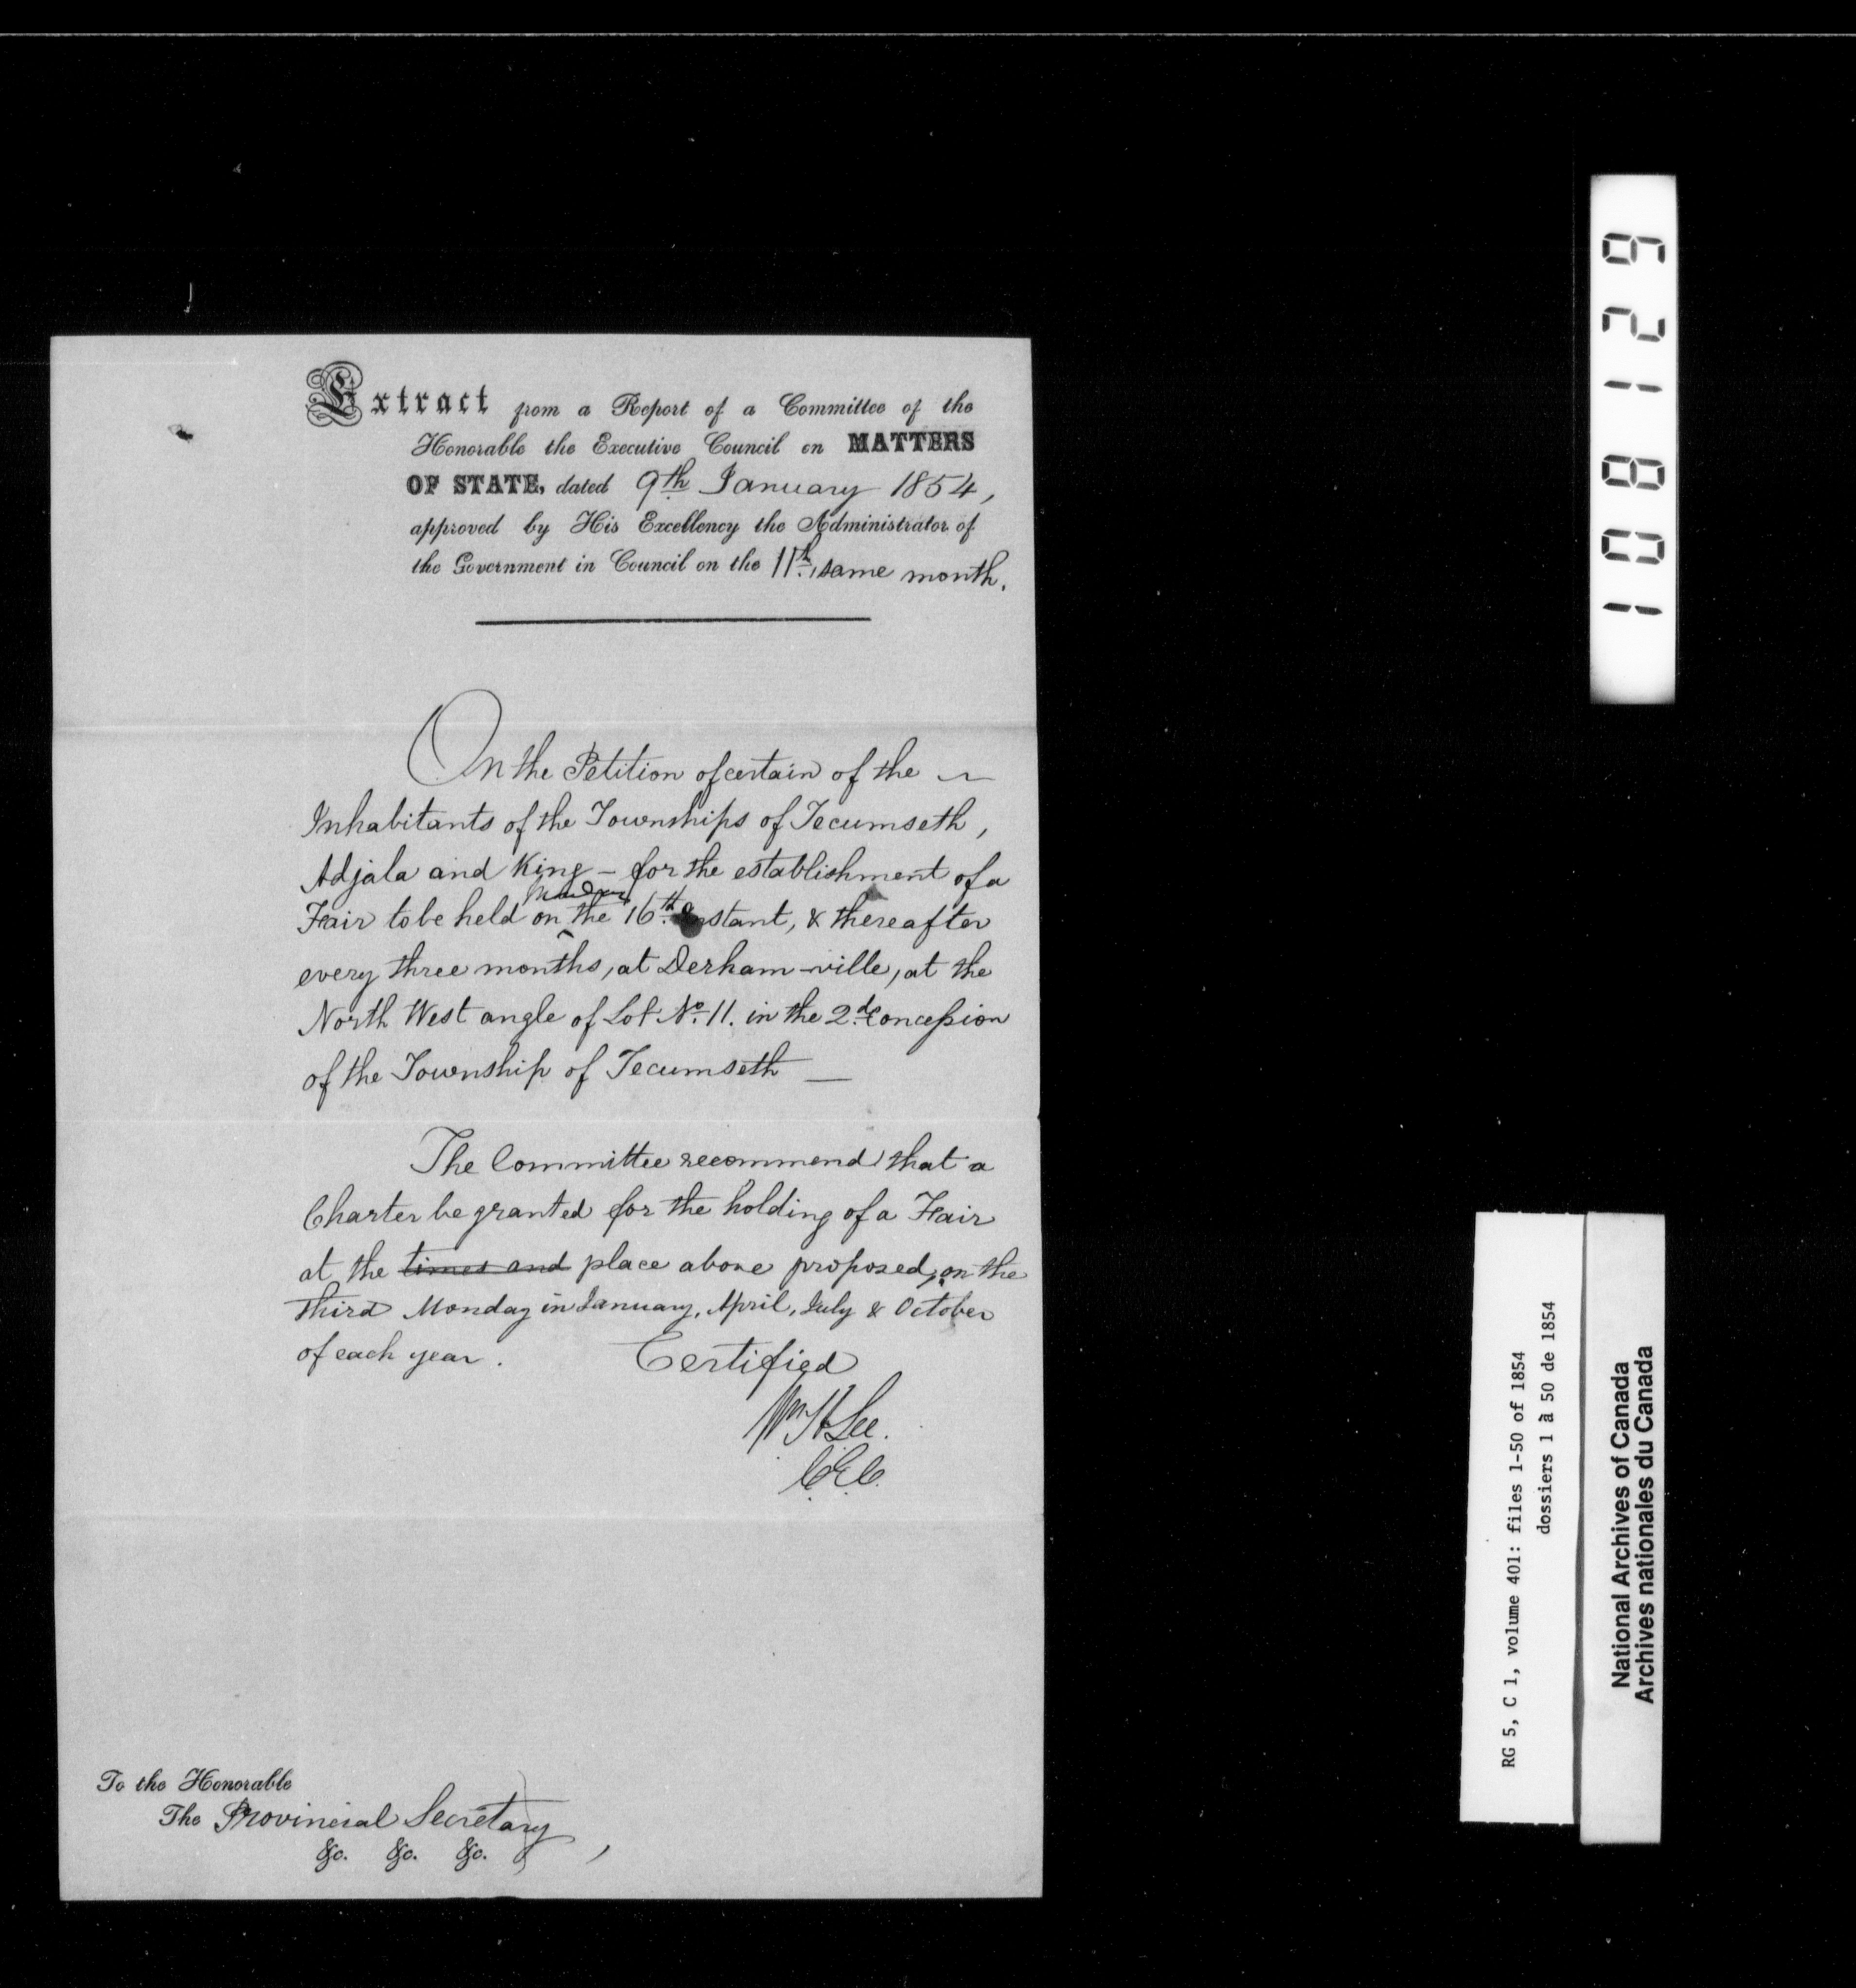 Extract from a Report of a Committee of the
Honorable the Executive Council on MATTERS
OF STATE, dated 9th January 1854,
approved by His Excellency the Administrator of
the Government in Council on the 11th same month.
On the Petition of certain of the
Inhabitants of the Townships of Tecumseth,
Adjala and King – for the establishment of a
Monday
Fair to be held on the 16th Instant, & thereafter
every three months, at Derham-ville, at the
North West angle of Lot No. 11. in the 2d. Concession
of the Township of Tecumseth —
The Committee recommend that a
Charter be granted for the holding of a Fair
at the times and place above proposed, on the
third Monday in January, April, July & October
of each year. Certified
Wm H Lee.
C.E.C.
To the Honorable
The Provincial Secretary
&c. &c. &c.
108129
RG 5, C 1, volume 401: files 1-50 of 1854
dossiers 1 à 50 de 1854
National Archives of Canada
Archives nationales du Canada